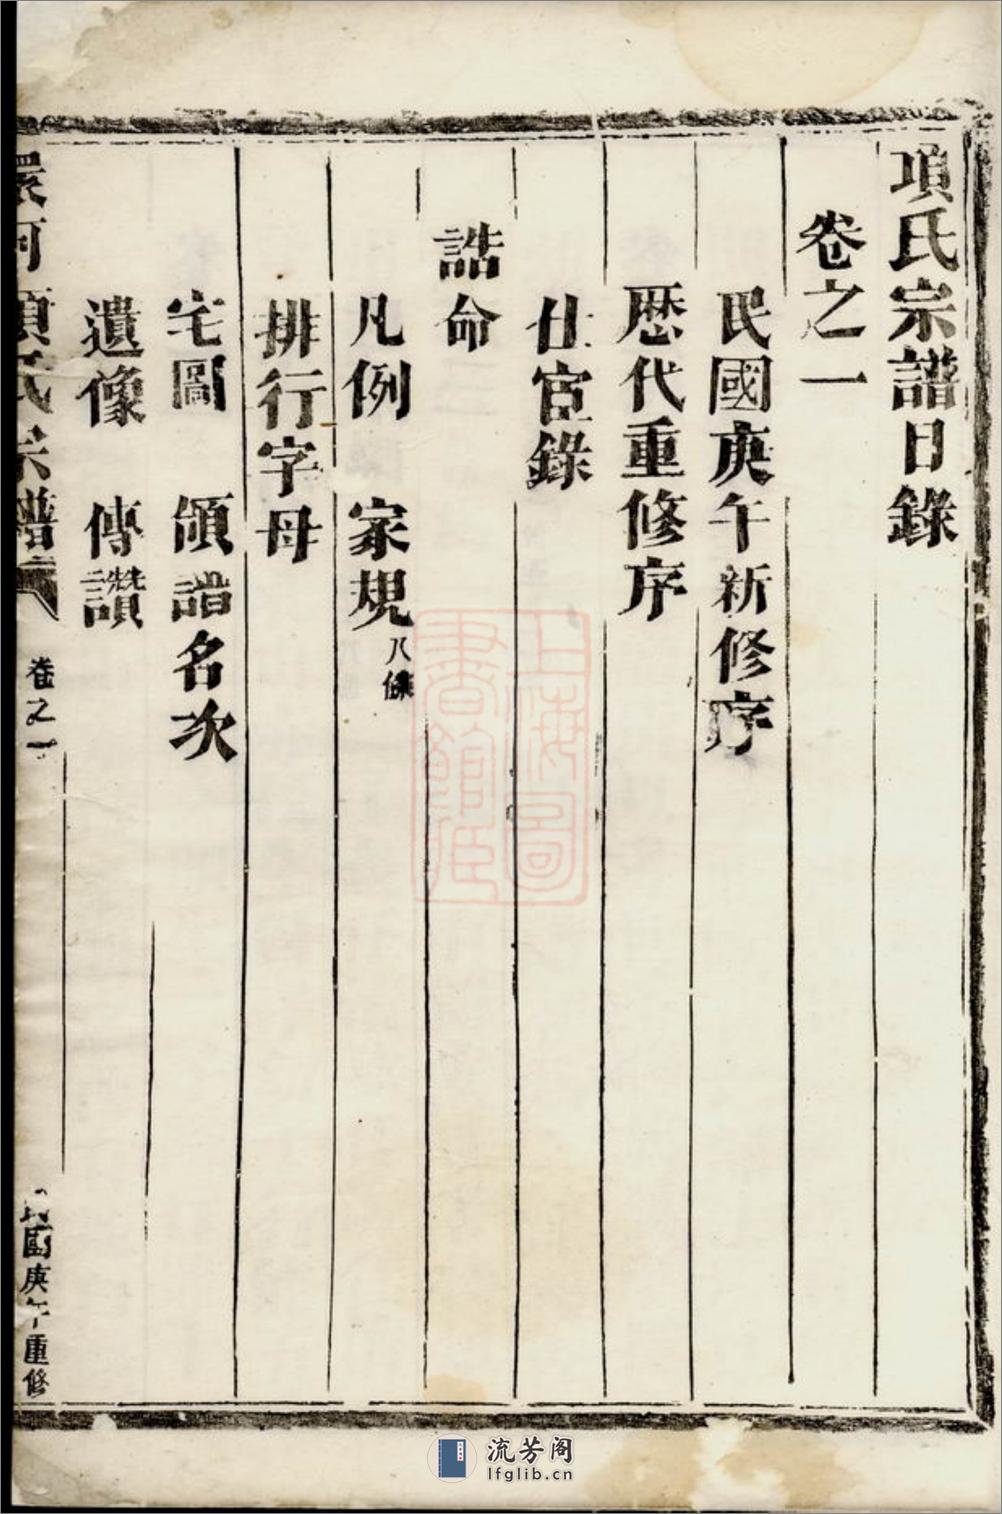 項氏宗譜目錄
卷之一
民國庚午新修序
歷代重修序
仕宦錄
誥命
凡例 家規八條
排行字母
宅圖 領譜名次
遺像 傳讚
環河項氏宗譜 卷之一 民國庚午重修
上海圖書館藏
流芳阁
lfglib.cn